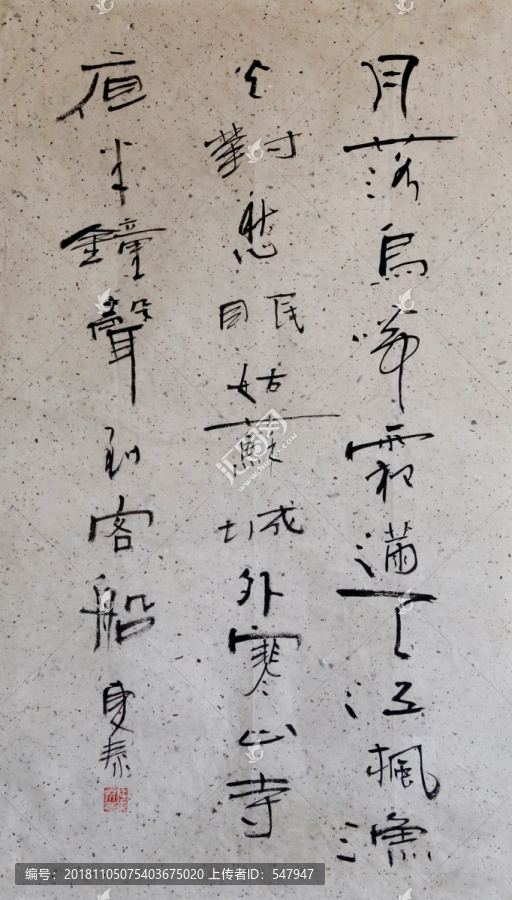 月落烏啼霜滿天江楓漁
火對愁眠姑蘇城外寒山寺
夜半鐘聲到客船
汇图网
编号：20181105075403675020 上传者ID：547947